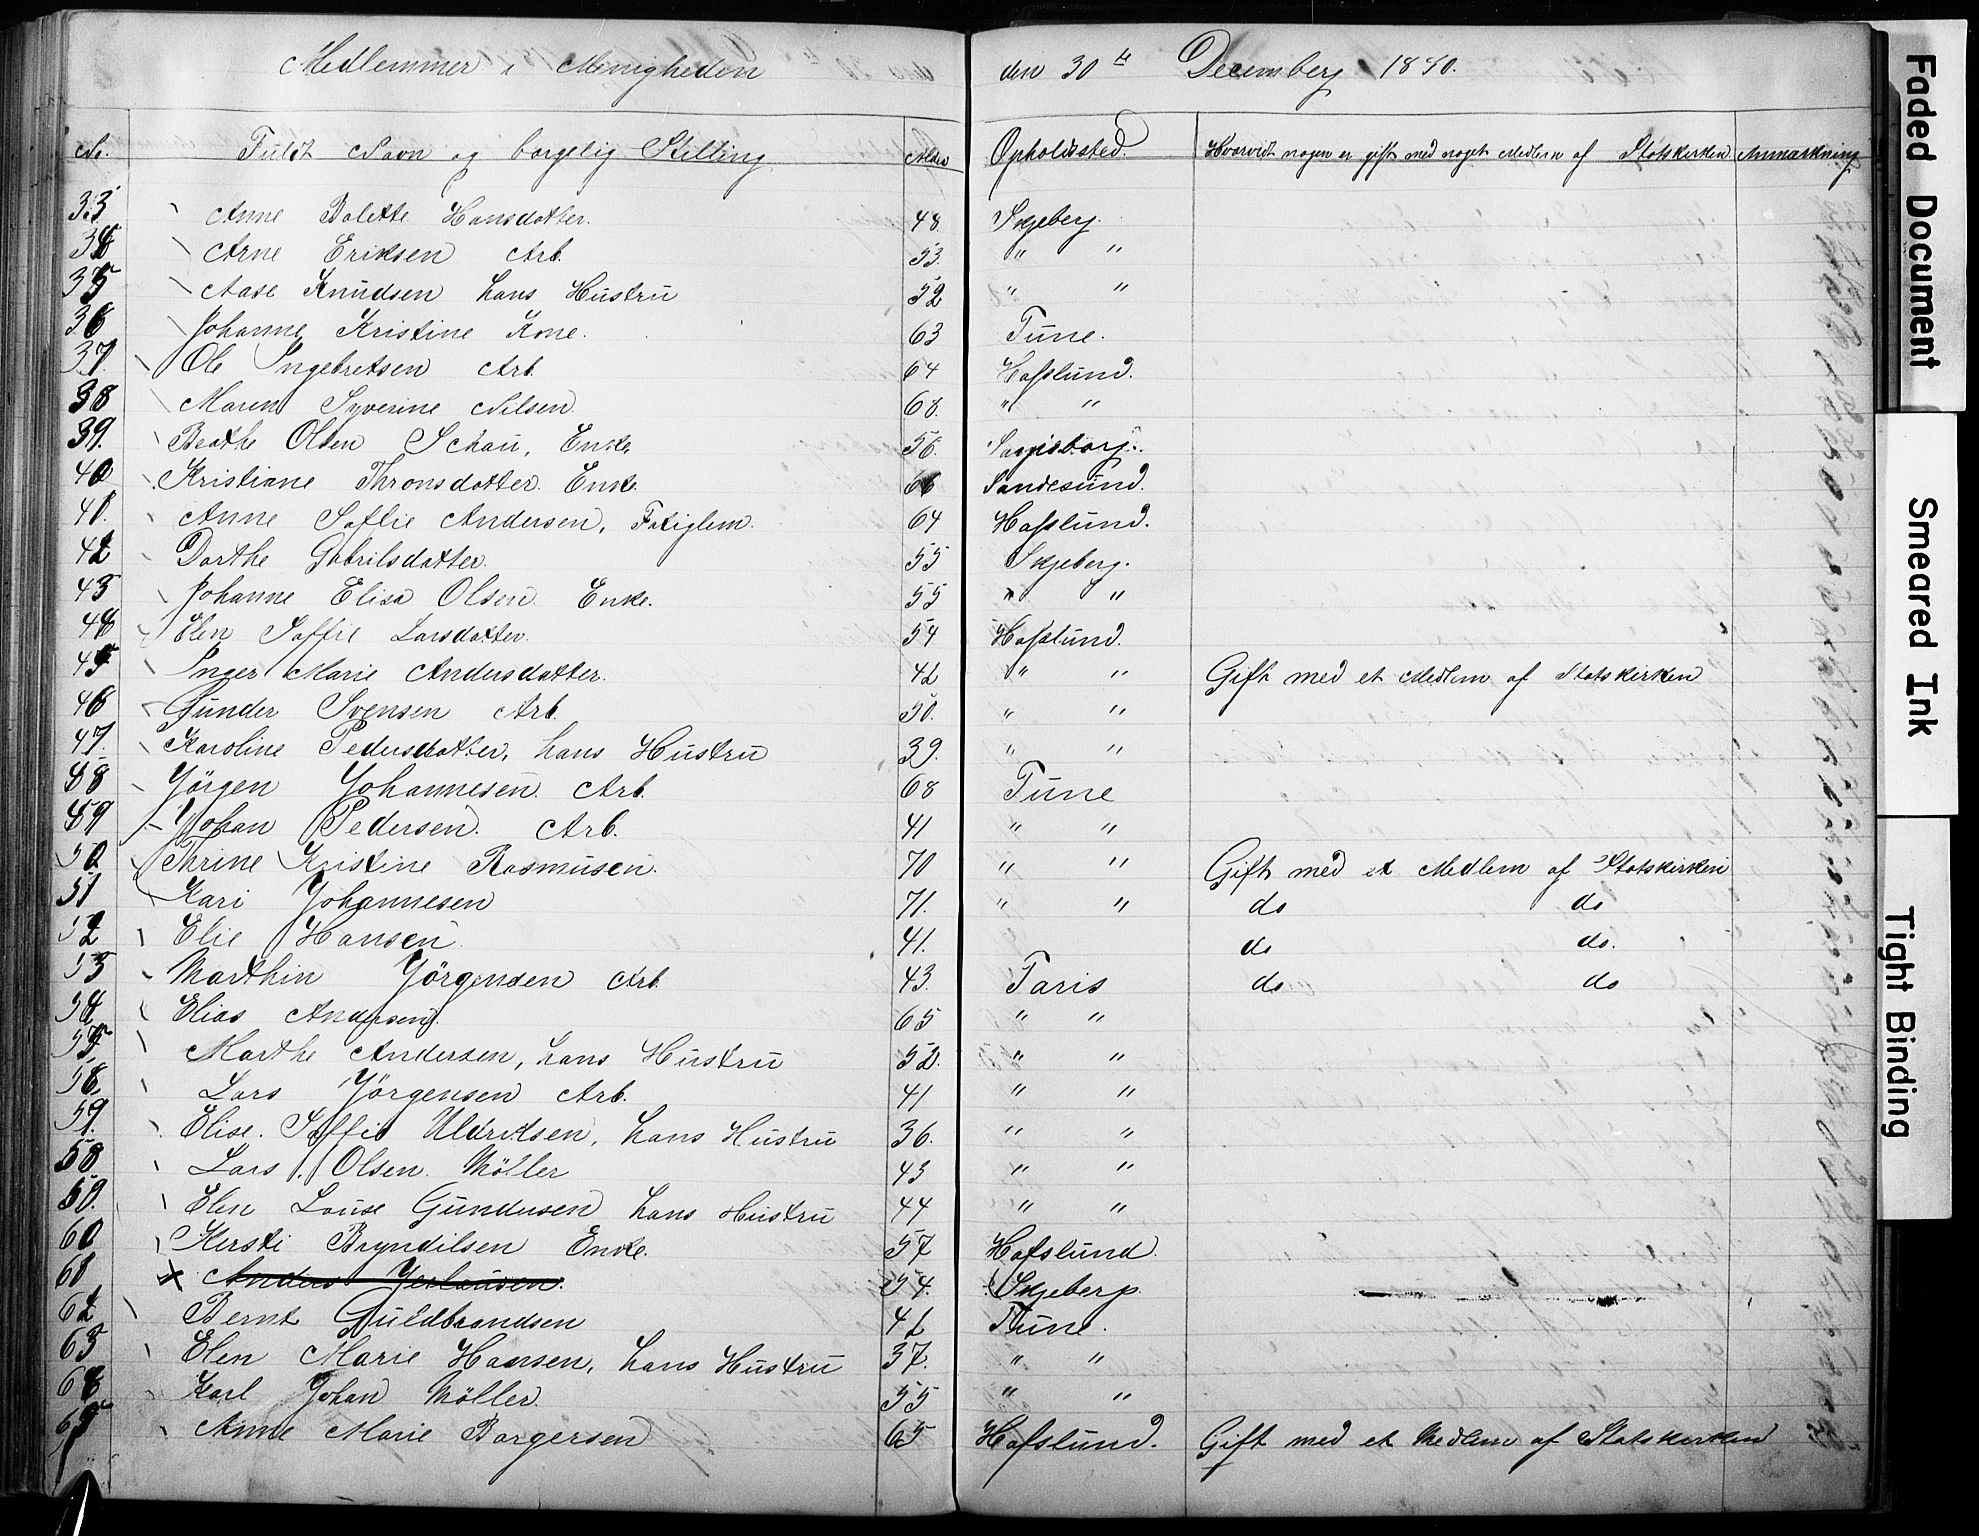 Medlemmer i Menigheden den 30te Decemberg 1890.
No. Fuldt Navn og borgelig Stilling Alder Opholdssted. Hvorvidt nogen er gift med noget Medlem af Statskirken Anmærkning
33 Anne Bolette Hansdatter. 48. Skjeberg.
34 Arne Eriksen Arb. 53. " "
35 Aase Knudsen hans Hustru 52 " "
36 Johanne Kristine Kone. 63 Tune.
37. Ole Ingebretsen Arb. 64 Hafslund.
38 Maren Syverine Nilsen. 68. " "
39. Beathe Olsen Schau, Enke. 56. Sarpsborg.
40 Kristiane Thronsdatter. Enke. 66 Sandesund.
41. Anne Saflie Andersen, Fatiglem. 64 Hafslund.
42 Dorthe Gabrilsdatter. 55 Skjeberg.
43 Johanne Elisa Olsen. Enke. 55 " "
44 Elen Saffie Larsdatter. 54 Hafslund.
45 Inger Marie Andersdatter. 42 " " Gift med et Medlem af Statskirken
46 Gunder Svensen Arb. 50. " "
47. Karoline Pedersdatter, hans Hustru 39. " "
48 Jörgen Johannesen. Arb. 68 Tune
49 Johan Pedersen. Arb. 41 " "
50. Thrine Kristine Rasmusen. 70 " " Gift med et Medlem af Statskirken
51 Kari Johannesen 71. " " do do
52 Elie Hansen 41. do do.
53 Marthin Jörgensen Arb. 43. Taris do do
54 Elias Andersen. 65 " "
55, Marthe Andersen, hans Hustru 52. " "
56, Lars Jörgensen Arb. 41 " "
59. Elise. Saffie Uldriksen, hans Hustru 36. " "
58 Lars. Olsen. Möller 43 " "
59. Elen Louse Gundersen hans Hustru 44 " "
60 Kersti Bryndilsen Enke. 57 Hafslund.
61 x Anders 54. Skjeberg.
62 Bernt Guldbrandsen 42 Tune.
63 Elen Marie Hansen, hans Hustru 37. " "
64 Karl Johan Möller. 55 " "
65 Anne Marie Borgersen 65 Hafslund. Gift med et Medlem af Statskirken
Faded Document
Smeared Ink
Tight Binding